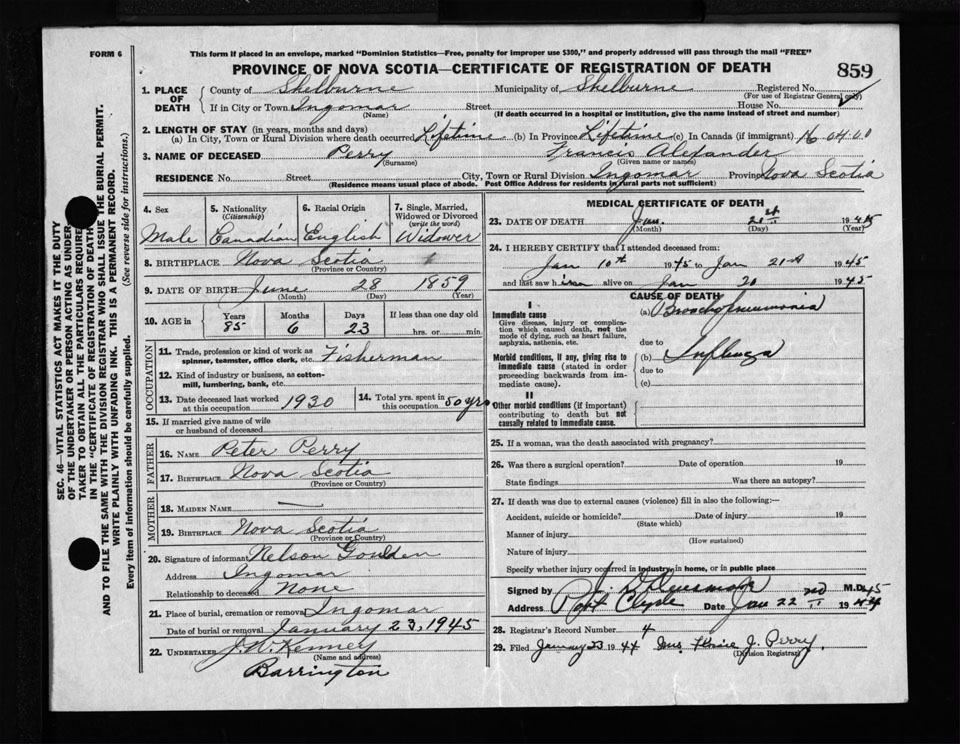 FORM 6
This form if placed in an envelope, marked "Dominion Statistics—Free, penalty for improper use $300," and properly addressed will pass through the mail "FREE"
PROVINCE OF NOVA SCOTIA—CERTIFICATE OF REGISTRATION OF DEATH
859
1. PLACE OF DEATH { County of Shelburne Municipality of Shelburne Registered No.
(For use of Registrar General only)
If in City or Town Ingomar Street House No.
(Name) (If death occurred in a hospital or institution, give the name instead of street and number)
2. LENGTH OF STAY (in years, months and days)
(a) In City, Town or Rural Division where death occurred Lifetime (b) In Province Lifetime (c) In Canada (if immigrant) 16 04 00
3. NAME OF DECEASED Perry Francis Alexander
(Surname) (Given name or names)
RESIDENCE No. Street City, Town or Rural Division Ingomar Province Nova Scotia
(Residence means usual place of abode. Post Office Address for residents in rural parts not sufficient)
4. Sex Male
5. Nationality (Citizenship) Canadian
6. Racial Origin English
7. Single, Married, Widowed or Divorced (write the word) Widower
8. BIRTHPLACE Nova Scotia
(Province or Country)
9. DATE OF BIRTH June 28 1859
(Month) (Day) (Year)
10. AGE in Years 85 Months 6 Days 23 If less than one day old hrs. or min.
OCCUPATION
11. Trade, profession or kind of work as spinner, teamster, office clerk, etc. Fisherman
12. Kind of industry or business, as cotton-mill, lumbering, bank, etc.
13. Date deceased last worked at this occupation 1930
14. Total yrs. spent in this occupation 50 yrs
15. If married give name of wife or husband of deceased
FATHER
16. NAME Peter Perry
17. BIRTHPLACE Nova Scotia
(Province or Country)
MOTHER
18. MAIDEN NAME —
19. BIRTHPLACE Nova Scotia
(Province or Country)
20. Signature of informant Nelson Goulden
Address Ingomar
Relationship to deceased None
21. Place of burial, cremation or removal Ingomar
Date of burial or removal January 23, 1945
22. UNDERTAKER J.W. Kenney
(Name and address)
Barrington
MEDICAL CERTIFICATE OF DEATH
23. DATE OF DEATH Jan. 21st 1945
(Month) (Day) (Year)
24. I HEREBY CERTIFY that I attended deceased from:
Jan 10th 1945 to Jan 21st 1945
and last saw him alive on Jan 20 1945
CAUSE OF DEATH
I
Immediate cause
Give disease, injury or complication which caused death, not the mode of dying, such as heart failure, asphyxia, asthenia, etc.
(a) Bronchopneumonia
due to
Morbid conditions, if any, giving rise to immediate cause (stated in order proceeding backwards from immediate cause).
(b) Influenza
due to
(c)
II
Other morbid conditions (if important) contributing to death but not causally related to immediate cause.
25. If a woman, was the death associated with pregnancy?
26. Was there a surgical operation? Date of operation 19
State findings Was there an autopsy?
27. If death was due to external causes (violence) fill in also the following:—
Accident, suicide or homicide? Date of injury 19
(State which)
Manner of injury
(How sustained)
Nature of injury
Specify whether injury occurred in industry, in home, or in public place
Signed by M.D.
Address Port Clyde Date Jan 22
28. Registrar's Record Number 4
29. Filed January 23 1944 Mrs. J. Perry
(Division Registrar)
SEC. 46—VITAL STATISTICS ACT MAKES IT THE DUTY
OF THE UNDERTAKER OR PERSON ACTING AS UNDER-
TAKER TO OBTAIN ALL THE PARTICULARS REQUIRED
IN THE "CERTIFICATE OF REGISTRATION OF DEATH"
AND TO FILE THE SAME WITH THE DIVISION REGISTRAR WHO SHALL ISSUE THE BURIAL PERMIT.
WRITE PLAINLY WITH UNFADING INK. THIS IS A PERMANENT RECORD.
Every item of information should be carefully supplied. (See reverse side for instructions.)